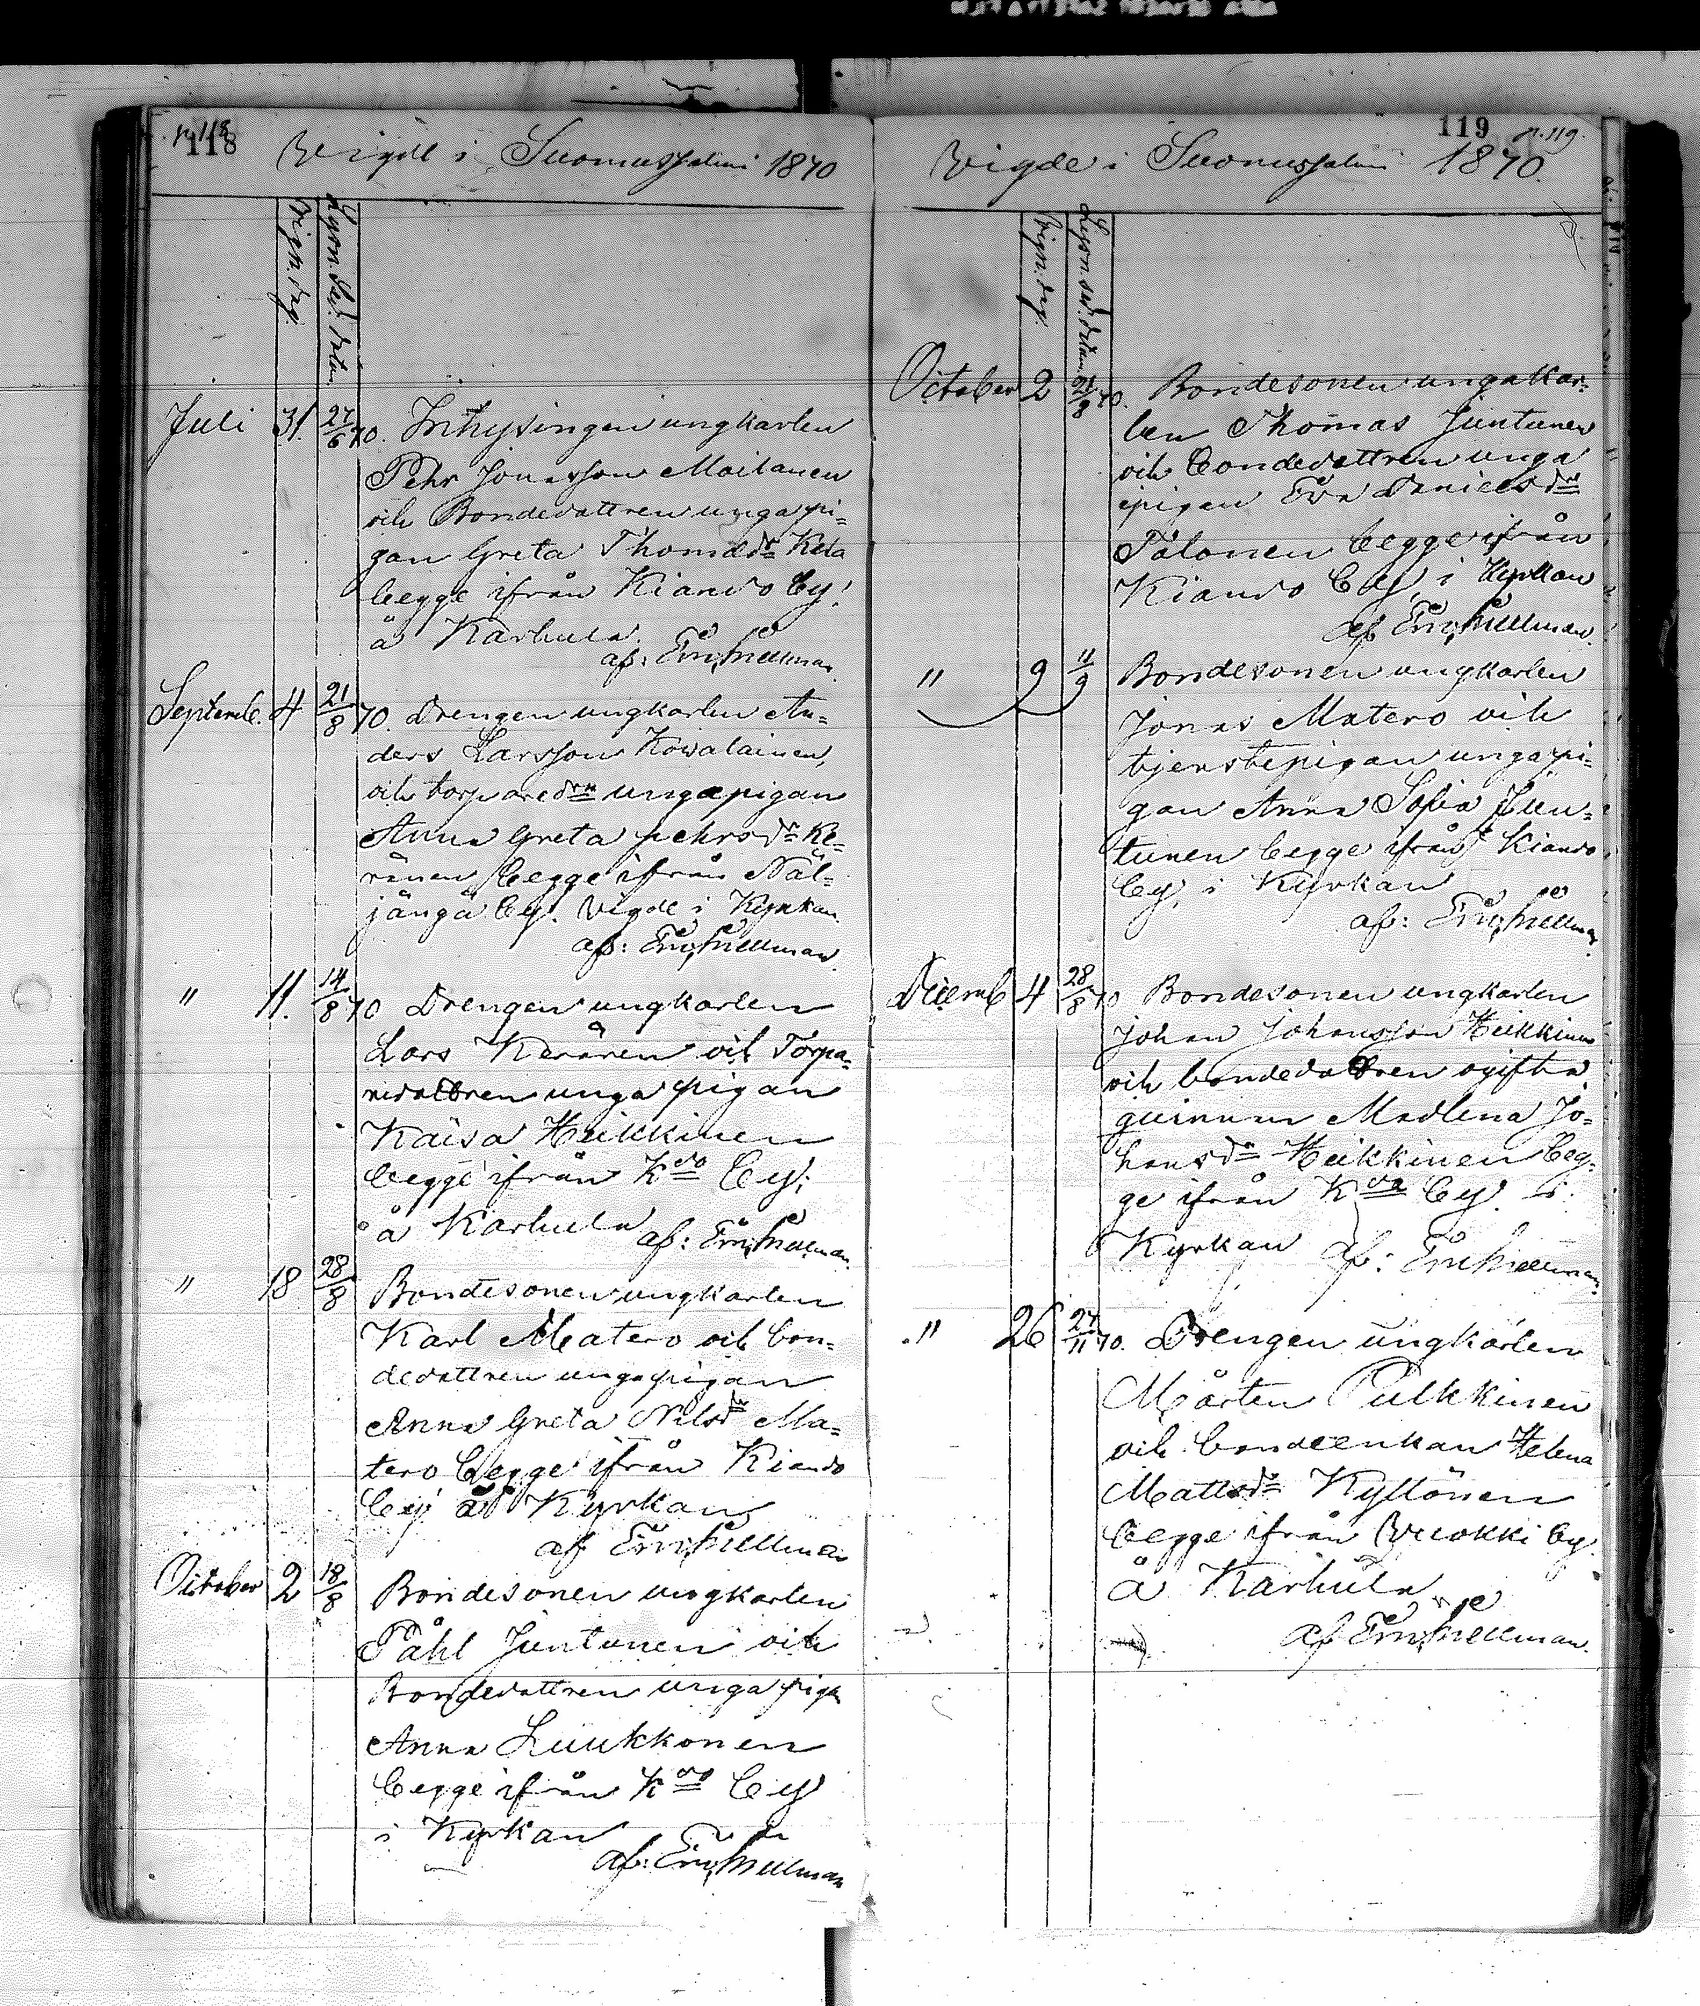 p. 118
118
Vigde i Suomussalmi 1870
Vign. dag.
Lysn. Sed. datum
Juli 31. 27/6 70. Inhysingen ungkarlen
Pehr Jonasson Moilanen
och Bondedottren unga pi=
gan Greta Thomasdr Kela
begge ifrån Kiando by;
å Karhula.
af: Em; Snellman.
Septemb. 4 21/8 70. Drengen ungkarlen An=
ders Larsson Kowalainen,
och torparedrn unga pigan
Anna Greta Pehrsdr Ke=
ränen begge ifrån Näl=
jängä by. Vigde i Kyrkan.
af: Em; Snellman.
" 11. 14/8 70 Drengen ungkarlen
Lars Keränen och Torpa=
redottren unga pigan
Kaisa Heikkinen
begge ifrån Kdo by;
å Karhula
af: Em; Snellman.
" 18 28/8 Bondesonen ungkarlen
Karl Matero och bon=
dedottren unga pigan
Anna Greta Nilsdr Ma=
tero begge ifrån Kiando
by i Kyrkan
af Em; Snellman
October 2 18/8 Bondesonen ungkarlen
Påhl Juntunen och
Bondedottren unga piga
Anna Luukkonen
begge ifrån Kdo by
i Kyrkan
af: Em; Snellman
119 p. 119.
Vigde i Suomussalmi 1870.
Vign. dag.
Lysn. sed. datum
October 2 21/8 70. Bondesonen unga kar=
len Thomas Juntunen
och bondedottren unga
pigan Eva Danielsdr
Talonen begge ifrån
Kiando by, i Kyrkan
af Em; Snellman.
" 9 11/9 Bondesonen ungkarlen
Jonas Matero och
tjenstepigan unga pi=
gan Anna Sofia Jun=
tunen begge ifrån Kiando
by, i Kyrkan
af: Em; Snellman
Decemb 4 28/8 70 Bondesonen ungkarlen
Johan Johansson Heikkinen
och bondedottren ogifta
quinnan Madlena Jo=
hansdr Heikkinen beg=
ge ifrån Kdo by i
Kyrkan
af: Em Snellman
" 26 27/11 70. Drengen ungkarlen
Mårten Pulkkinen
och bondeenkan Helena
Mattsdr Kyllönen
begge ifrån Vuokki by.
å Karhula
af Em; Snellman.